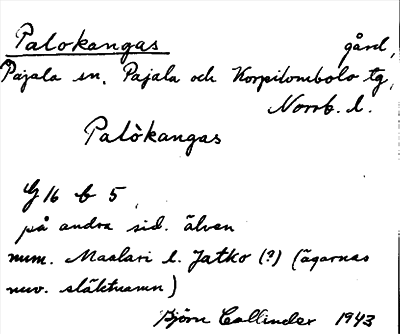 Palokangas gård,
Pajala sn. Pajala och Korpilombolo tg,
Norrb. l.
Palòkangas
G 16 b 5
på andra sid. älven
num. Maalari l. Jatko (?) (ägarnas
nuv. släktnamn)
Björn Collinder 1943